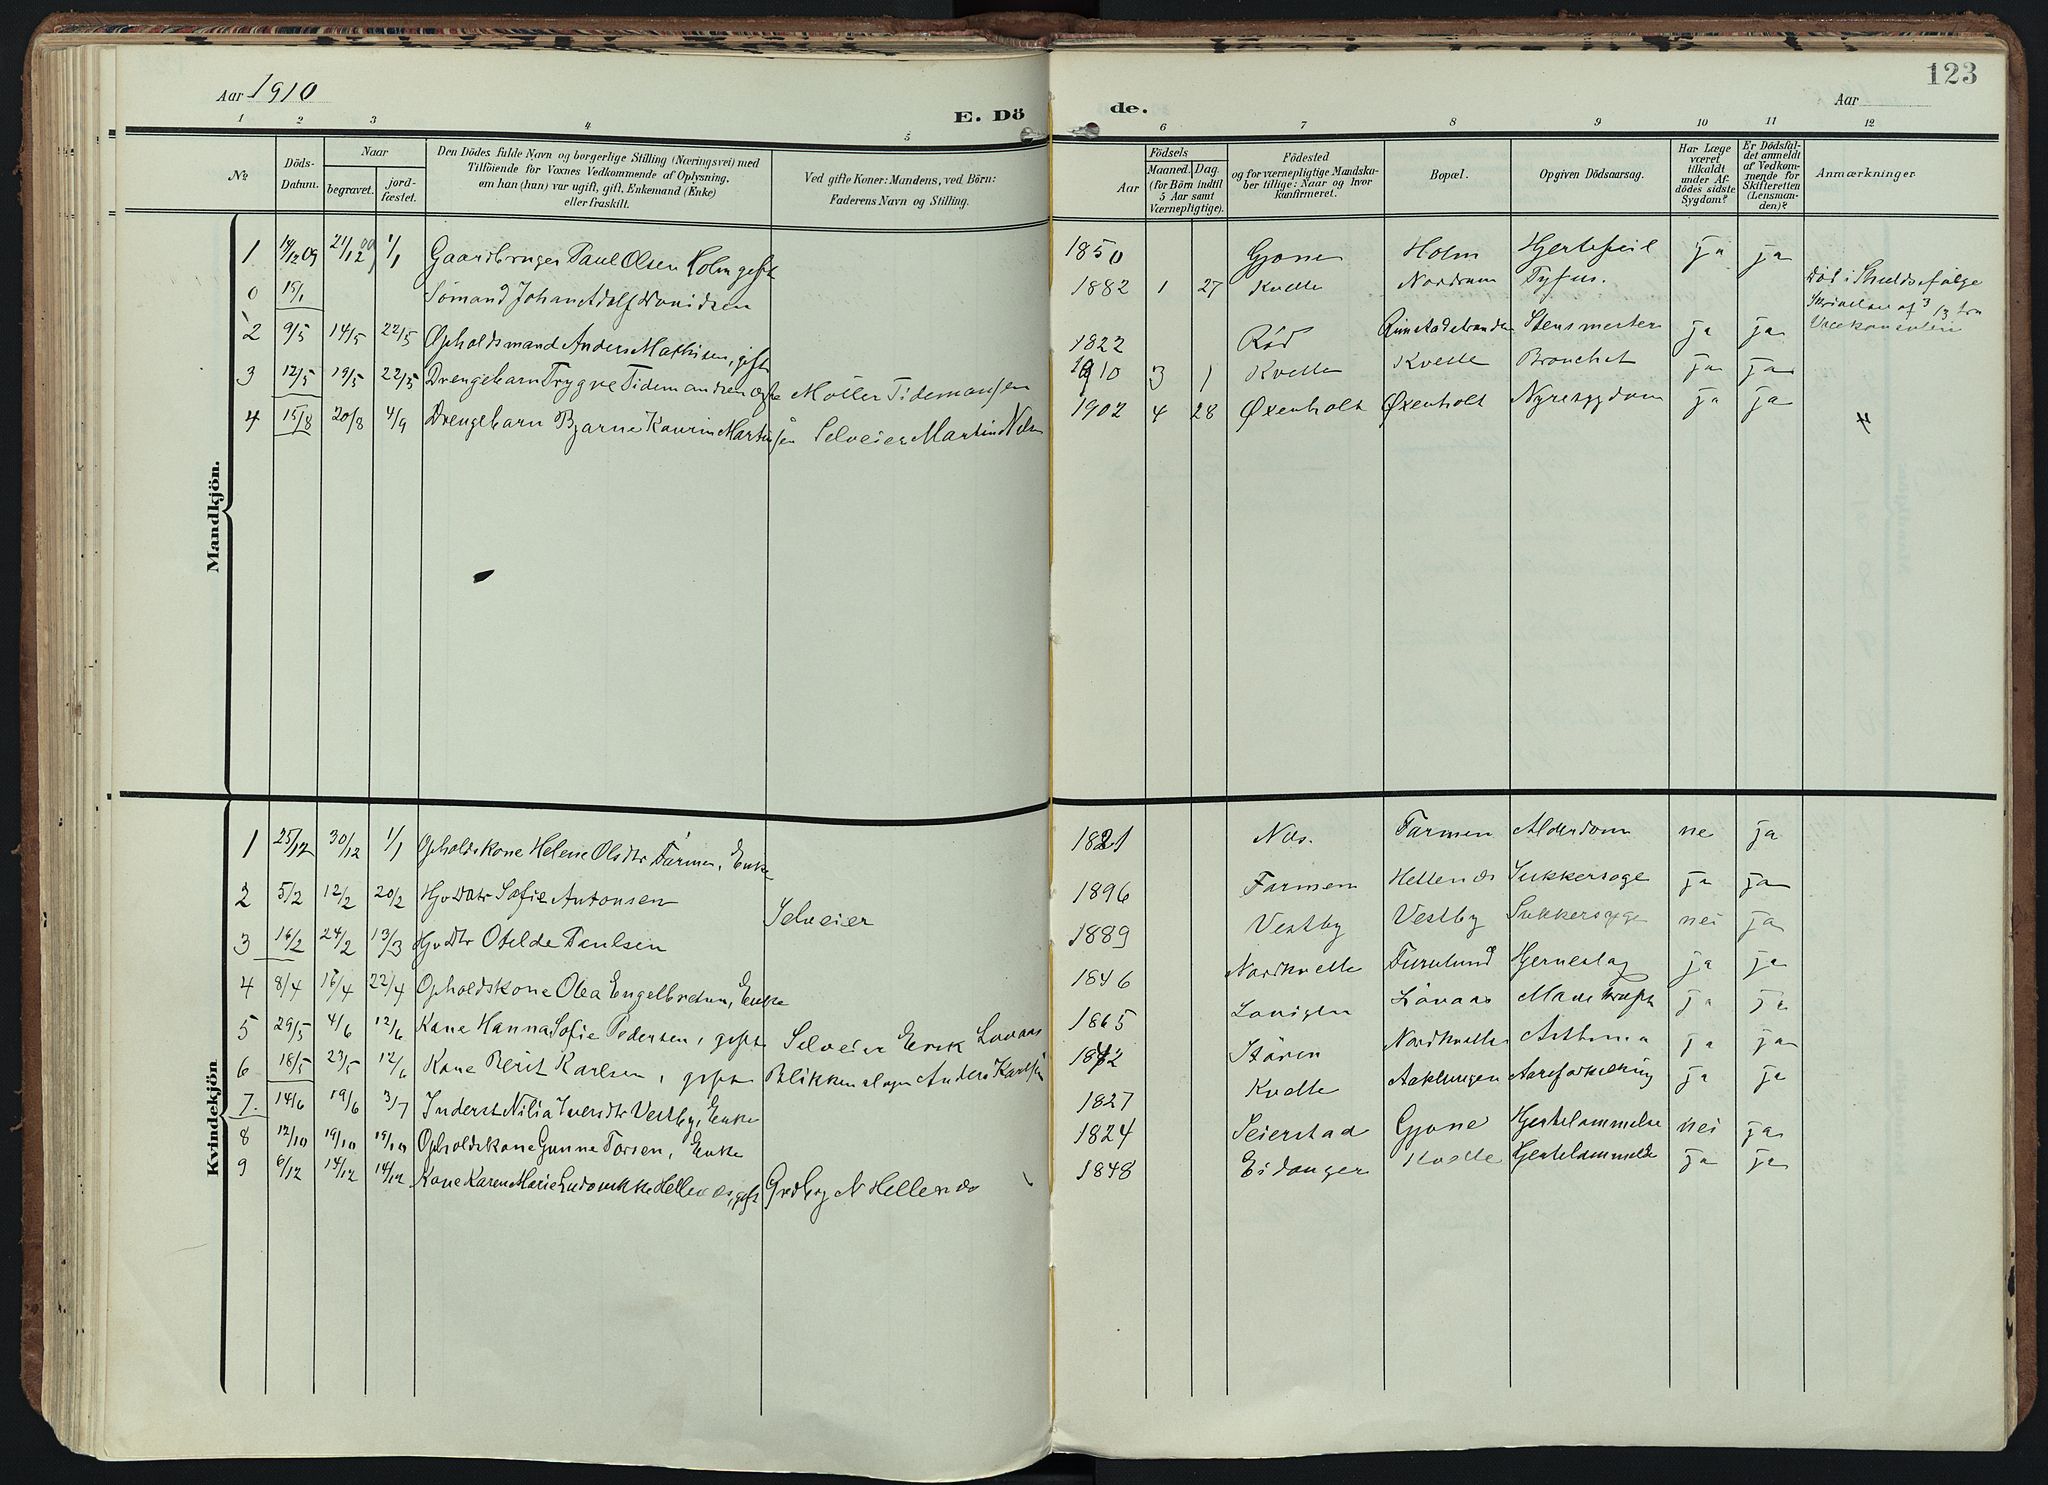 123
Aar 1910
E. Dö de.
Aar
1 2 3 4 5 6 7 8 9 10 11 12
No. Döds-Datum. Naar begravet. jord-fæstet. Den Dödes fulde Navn og borgerlige Stilling (Næringsvei) med Tilföiende for Voxnes Vedkommende af Oplysning. om han (hun) var ugift, gift, Enkemand (Enke) eller fraskilt. Ved gifte Koner: Mandens, ved Börn: Faderens Navn og Stilling.
Aar Födsels Maaned. Dag. (for Börn indtil 5 Aar samt Værnepligtige). Födested og for værnepligtige Mandskaber tillige: Naar og hvor Konfirmeret. Bopæl. Opgiven Dödsaarsag. Har Læge været tilkaldt under Afdödes sidste Sygdom? Er Dödsfaldet anmeldt af Vedkommende for Skifteretten (Lensmanden)? Anmærkninger
Mandkjön.
1 14/12 09 21/12 09 1/1 Gaardbruger Paul Olsen Holm gift 1850 Gjone Holm Hjertefeil ja ja
0 15/1 Sömand Johan Adolf Davidsen 1882 1 27 Kvelle Nordrum Tyfus. Död i
2 9/5 14/5 22/5 Opholdsmand Anders Mathisen, gift 1822 Röd Stensmerter ja ja
3 12/5 19/5 22/5 Drengebarn Trygve Tidemandsen ægte Möller Tidemansen 1910 3 1 Kvelle Kvelle Bronchit ja ja
4 15/8 20/8 4/9 Drengebarn Bjarne Kaurin Martinsen Selveier Martin Nilsen 1902 4 28 Øxenholt Øxenholt Nyresygdom ja ja
Kvindekjön
1 25/12 30/12 1/1 Opholdskone Helene Olsdtr Farmen, Enke 1821 Næs. Farmen Alderdom nei ja
2 5/2 12/2 20/2 Hjv Datr Sofie Antonsen 1896 Farmen Hellenæs Sukkersyge ja ja
3 16/2 24/2 13/3 Hjv Dtr Otelde Paulsen Selveier 1889 Vestby Vestby Sukkersyge nei ja
4 8/4 16/4 22/4 Opholdskone Olea Engelbretsen, Enke 1846 Nordkvelle Furulund Hjerneslag ja ja
5 29/5 4/6 12/6 Kone Hanna Sofie Pedersen, gift Selveier Erik Lovaas 1865 Lövaas Mavekræft ja ja
6 18/5 23/5 12/6 Kone Berit Karlsen, gift Blikkenslager Anders Karlsen Stören Nordkvelle Asthma ja ja
7. 14/6 19/6 3/7 Inderst Nilia Iversdtr Vestby, Enke 1827 Kvelle Aaklungen Aareforkalkning ja ja
8 12/10 19/10 19/10 Opholdskone Gunne Torsen, Enke 1824 Seierstad Gjone Hjertelammelse nei ja
9 6/12 14/12 14/12 Kone Karen Marie Ludovikke Hellenæs, gift Grdbrg N Hellenæs 1848 Eidanger Kvelle Hjertelammelse ja ja